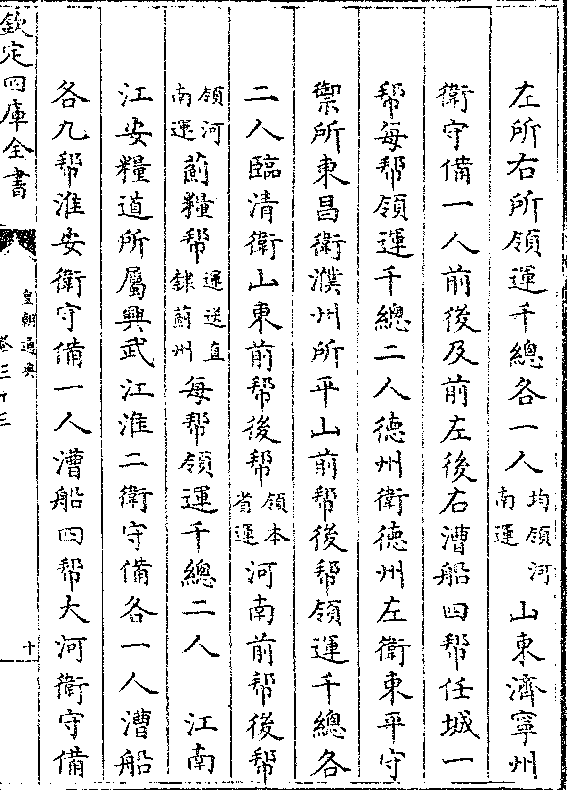 左所右所領運千總各一人均領河南運山東濟寧州
衛守備一人前後及前左後右漕船四帮任城一
帮每帮領運千總二人德州衛德州左衛東平守
禦所東昌衛濮州所平山前帮後帮領運千總各
二人臨清衛山東前帮後帮領本省運河南前帮後帮
領河南運薊糧帮運送直隸薊州每帮領運千總二人 江南
江安糧道所屬興武江淮二衛守備各一人漕船
各九帮淮安衛守備一人漕船四帮大河衛守備
欽定四庫全書
皇朝通典
卷三十三
十